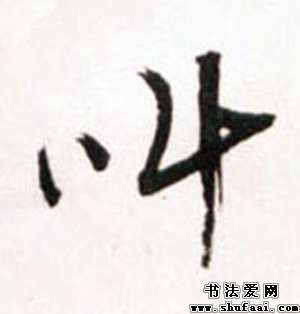 叫
书法爱网
www.shufaai.com